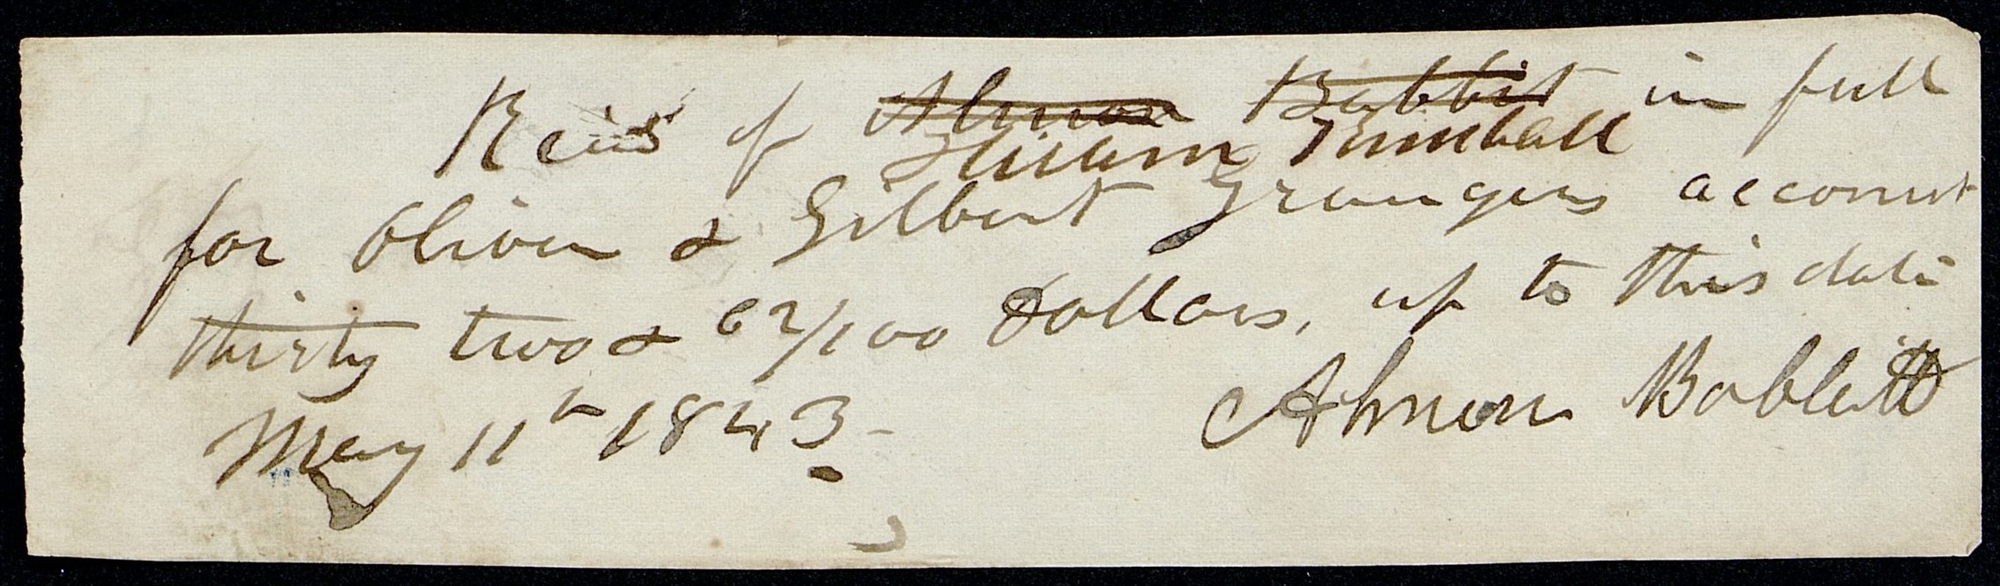 Recd of Almon Babbit in full
Hiram Kimball
for Oliver & Gilbert Grangers account
thirty two & 62/100 Dollars, up to this date
May 11th 1843- Almon Babbitt